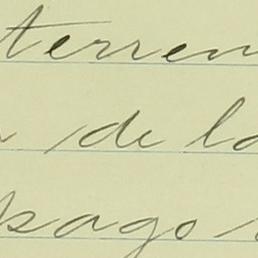 terren
de la
pago